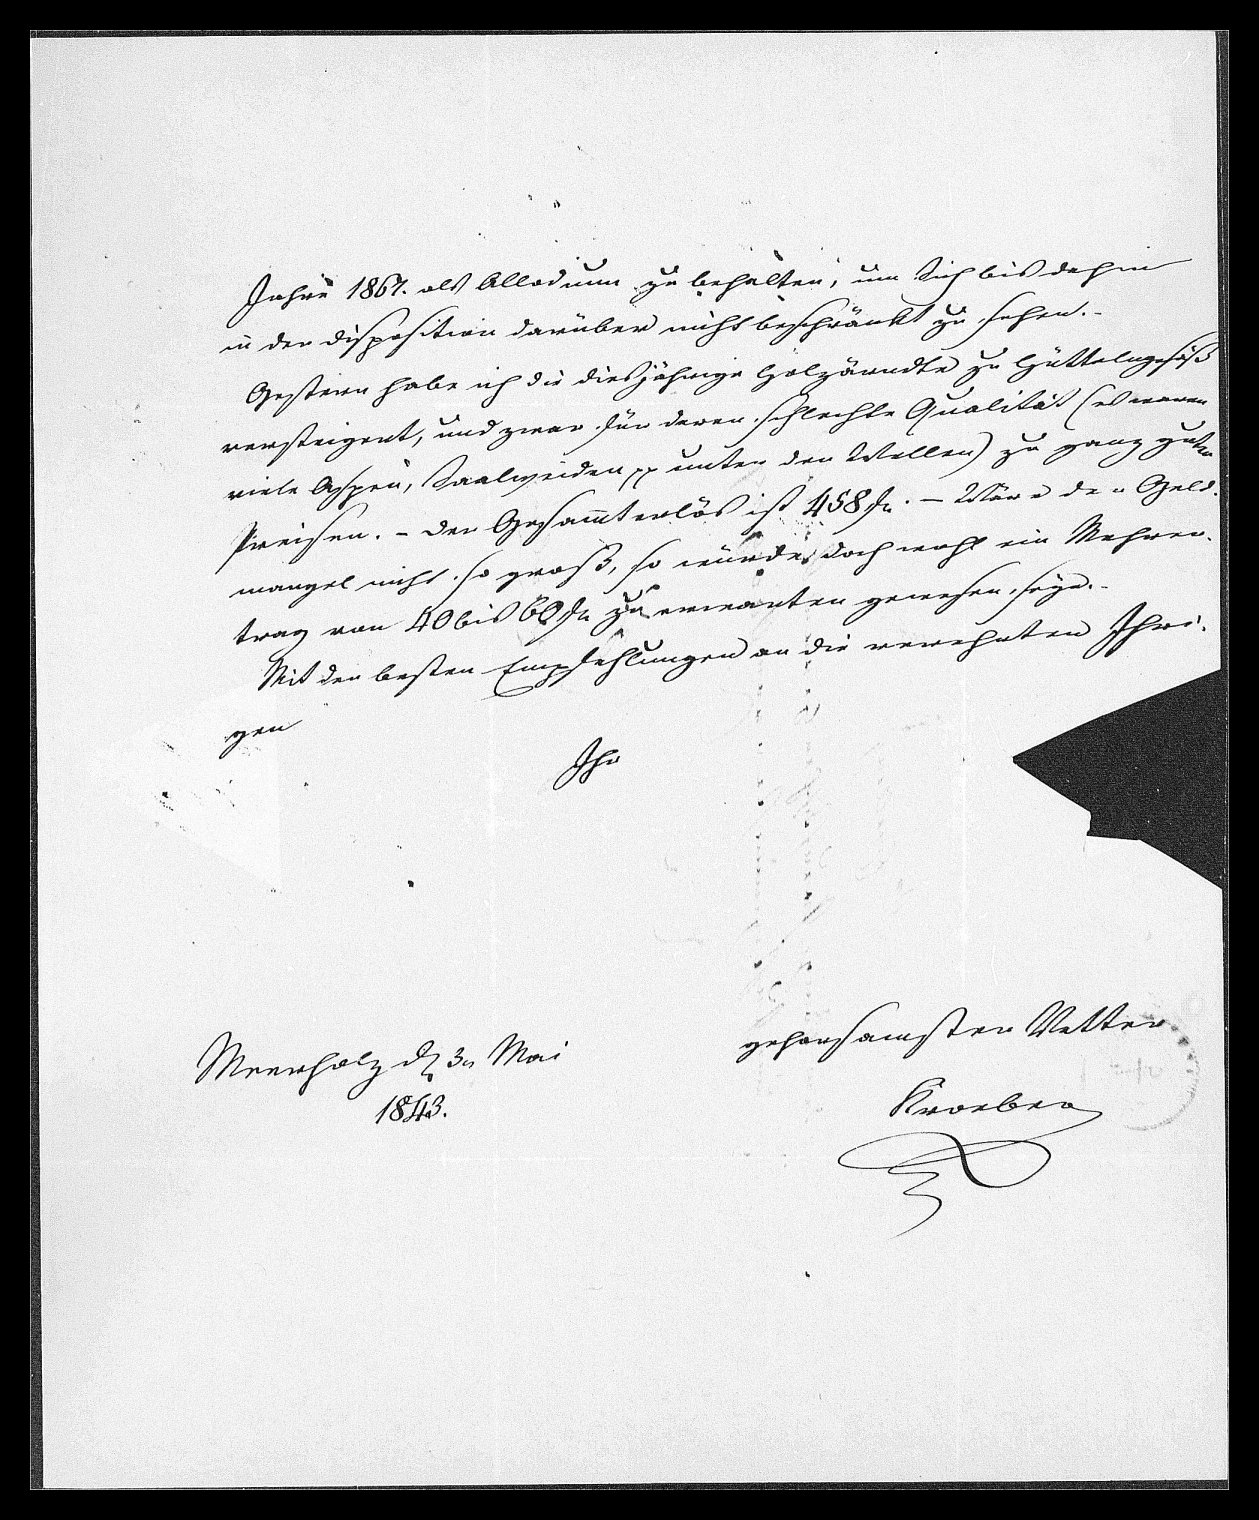 Jahre 1867. als Allodium zu behalten, um Sich bis dahin
in der Disposition darüber nicht beschränkt zu sehen.-
Gestern habe ich die diesjährige Holzärndte zu Hüttelngesäß
versteigert, und zwar für deren schlechte Qualität (es waren
viele Aspen, Saalweiden pp unter den Wellen) zu ganz guten
Preisen. - Der Gesam̅terlös ist 458 fr. - Wäre der Geld-
mangel nicht so groß, so würde doch wohl ein Mehrer-
trag von 40 bis 60 fr zu erwarten gewesen seyn.-
Mit den besten Empfehlungen an die verehrten Ihri-
gen
Ihr
gehorsamster Vetter
Kroeber
Meerholz d 3n Mai
1843.